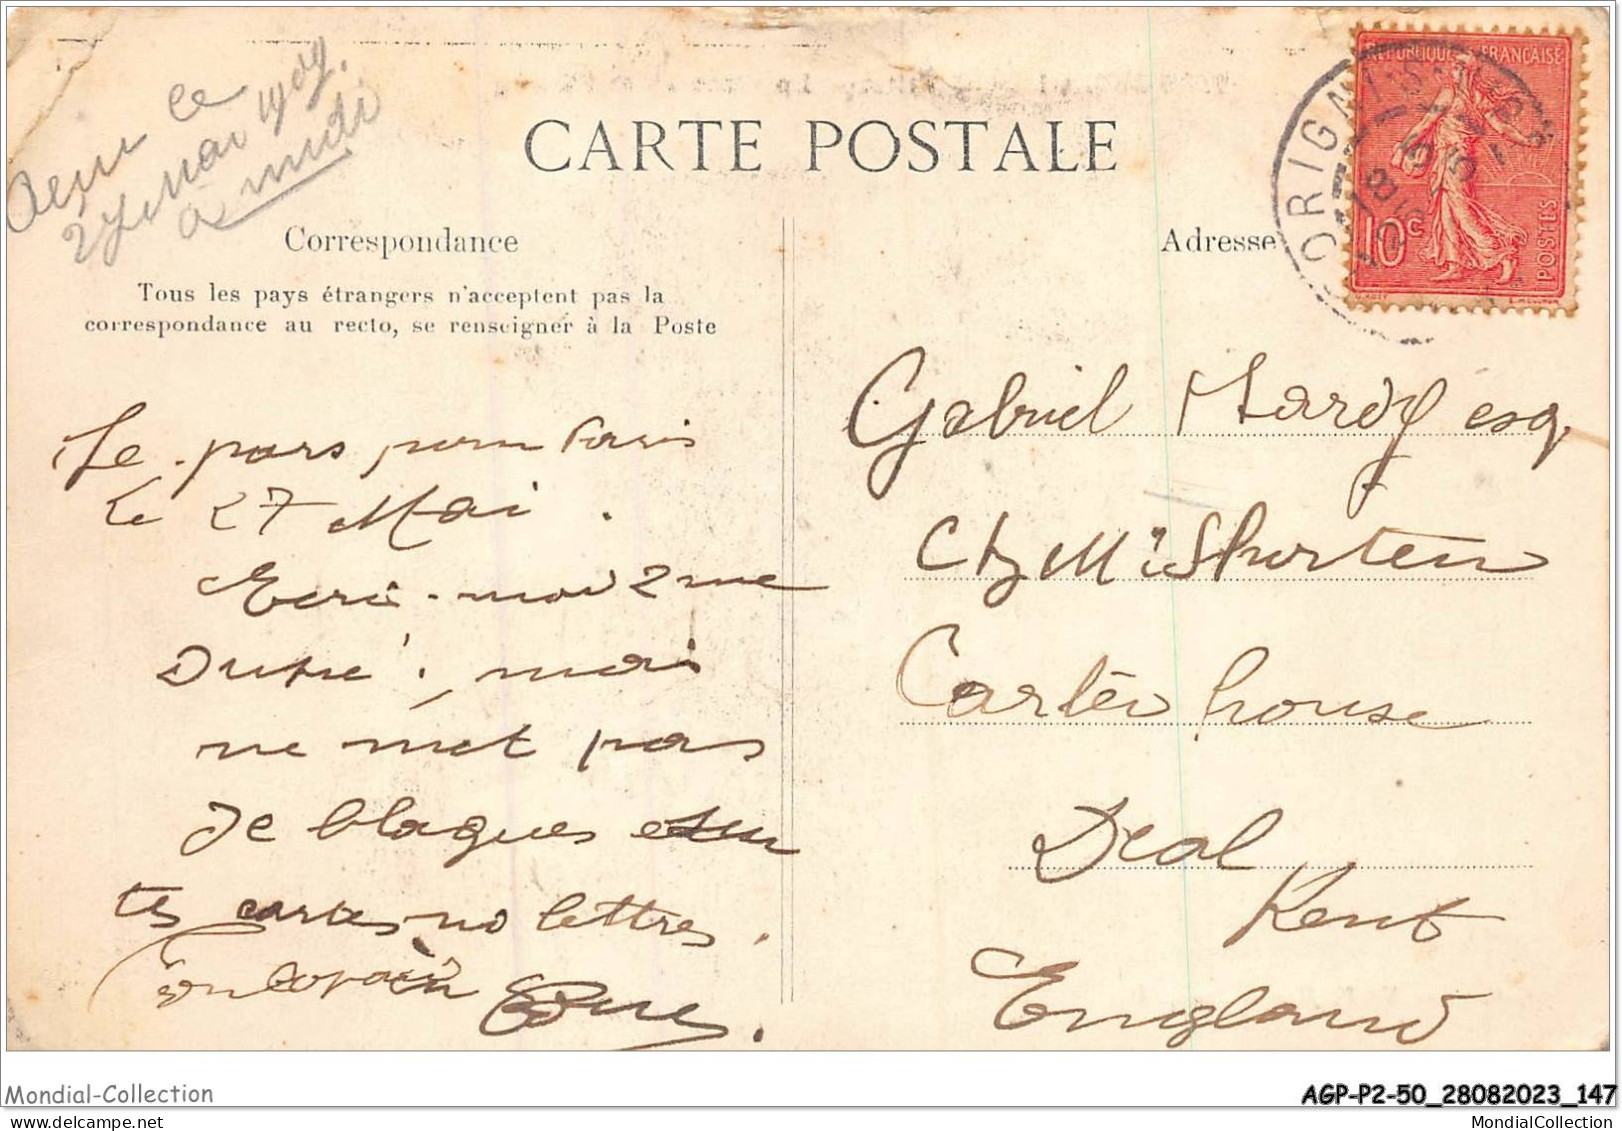 Reçu ce
27 Mai 1909.
à midi
CARTE POSTALE
Correspondance
Tous les pays étrangers n'acceptent pas la
correspondance au recto, se renseigner à la Poste
Je pars pour Paris
le 27 Mai.
Ecris-moi 2 rue
Dupré, mais
ne met pas
de blagues sur
tes cartes ni lettres.
Ton copain
Adresse
RÉPUBLIQUE FRANÇAISE
10c
POSTES
ORIGN
18
Gabriel Hardy esq
Chz Mis Shorten
Carter house
Deal
Kent
England
Mondial-Collection
AGP-P2-50_28082023_147
www.delcampe.net
MondialCollection